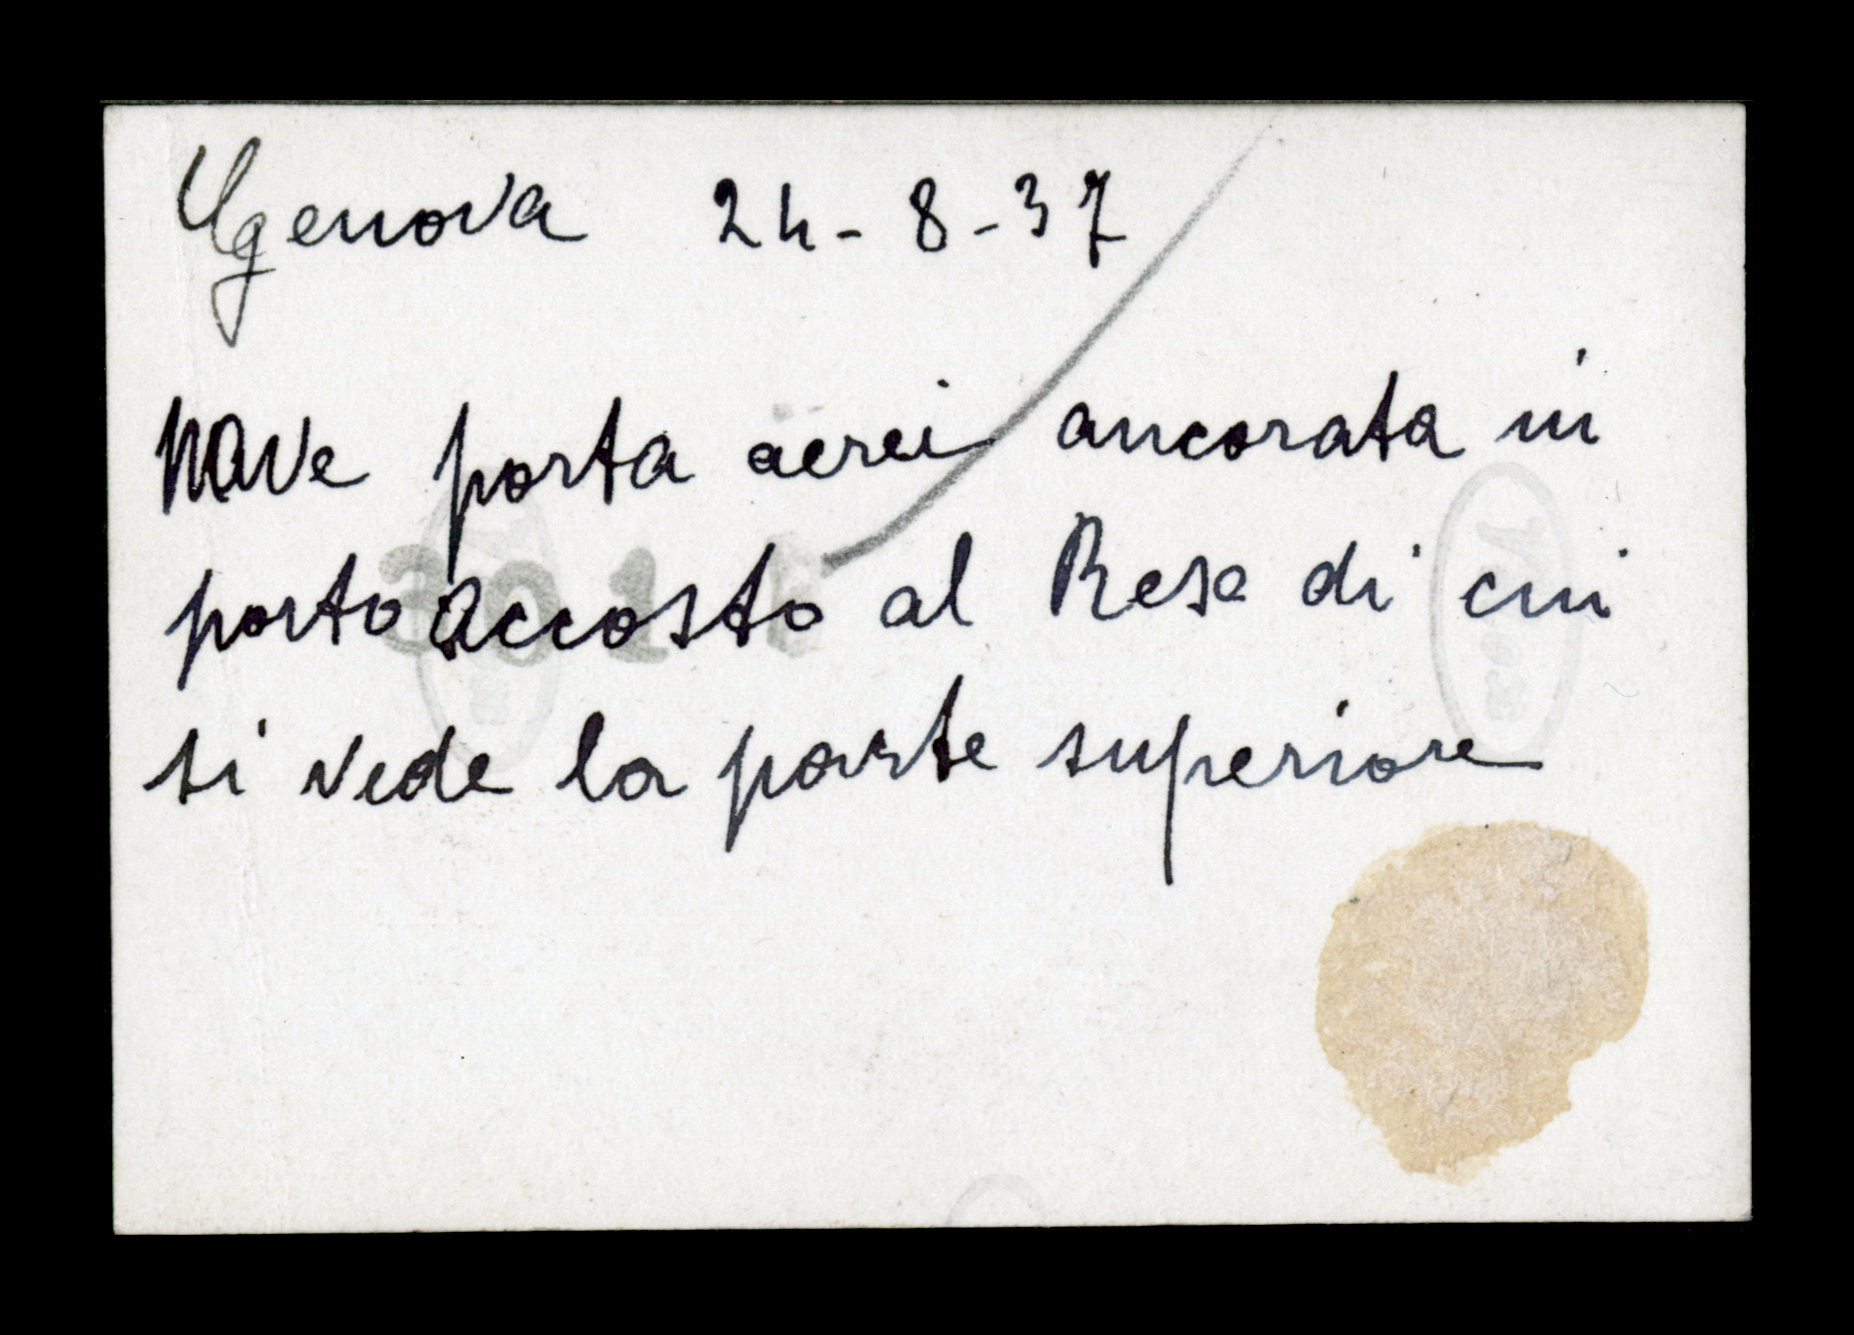 Genova 24-8-37
nave porta aerei ancorata in
porto accosto al Rese di cui
si vede la parte superiore